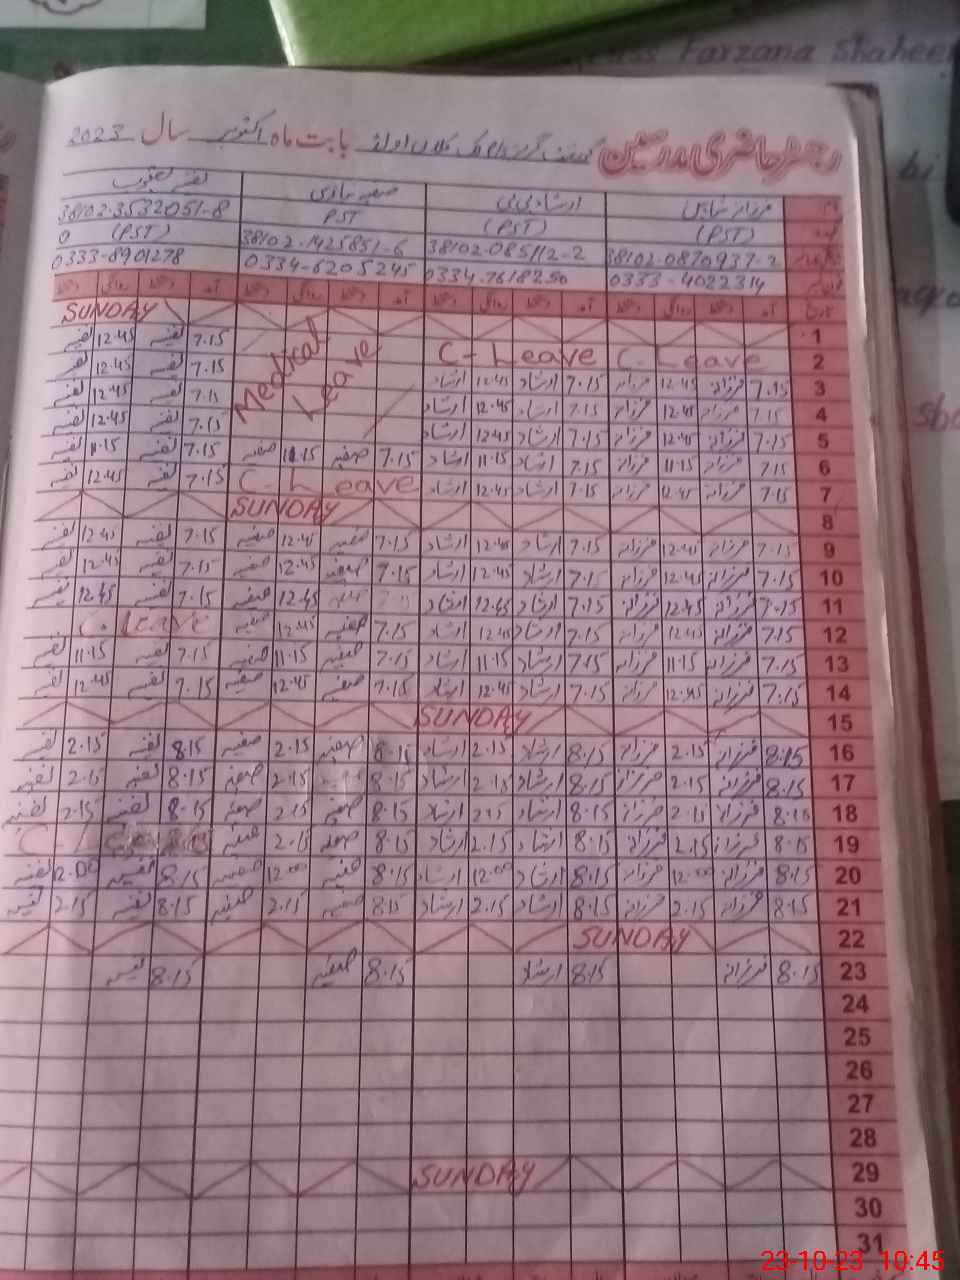 Miss Farzana Shaheen
رجسٹر حاضری مدرسین بابت ماہ اکتوبر سال 2023
فرزانہ شاہین ارشاد بی بی صفیہ
(PST) (PST) PST (PST)
38102-0870937-2 38102-085112-2 38102-1425851-6 38102-3532051-8
0
0333-4022314 0334-7618250 0334-6205245 0333-8901278
تاریخ آمد دستخط روانگی دستخط آمد دستخط روانگی دستخط آمد دستخط روانگی دستخط آمد دستخط روانگی دستخط
1 SUNDAY
2 C-Leave C-Leave Medical Leave 7.15 12.45
3 7.15 فرزانہ 12.45 فرزانہ 7.15 ارشاد 12.45 ارشاد 7.15 12.45
4 7.15 فرزانہ 12.45 فرزانہ 7.15 ارشاد 12.45 ارشاد 7.15 12.45
5 7.15 فرزانہ 12.45 فرزانہ 7.15 ارشاد 12.45 ارشاد 7.15 12.45
6 7.15 فرزانہ 11.15 فرزانہ 7.15 ارشاد 11.15 ارشاد 7.15 صفیہ 11.15 صفیہ 7.15 11.15
7 7.15 فرزانہ 12.45 فرزانہ 7.15 ارشاد 12.45 ارشاد C-Leave 7.15 12.45
8 SUNDAY
9 7.15 فرزانہ 12.45 فرزانہ 7.15 ارشاد 12.45 ارشاد 7.15 صفیہ 12.45 صفیہ 7.15 12.45
10 7.15 فرزانہ 12.45 فرزانہ 7.15 ارشاد 12.45 ارشاد 7.15 صفیہ 12.45 صفیہ 7.15 12.45
11 7.15 فرزانہ 12.45 فرزانہ 7.15 ارشاد 12.45 ارشاد 7.15 صفیہ 12.45 صفیہ 7.15 12.45
12 7.15 فرزانہ 12.45 فرزانہ 7.15 ارشاد 12.45 ارشاد 7.15 صفیہ 12.45 صفیہ C-Leave
13 7.15 فرزانہ 11.15 فرزانہ 7.15 ارشاد 11.15 ارشاد 7.15 صفیہ 11.15 صفیہ 7.15 11.15
14 7.15 فرزانہ 12.45 فرزانہ 7.15 ارشاد 12.45 ارشاد 7.15 صفیہ 12.45 صفیہ 7.15 12.45
15 SUNDAY
16 8.15 فرزانہ 2.15 فرزانہ 8.15 ارشاد 2.15 ارشاد 8.15 صفیہ 2.15 صفیہ 8.15 2.15
17 8.15 فرزانہ 2.15 فرزانہ 8.15 ارشاد 2.15 ارشاد 8.15 صفیہ 2.15 صفیہ 8.15 2.15
18 8.15 فرزانہ 2.15 فرزانہ 8.15 ارشاد 2.15 ارشاد 8.15 صفیہ 2.15 صفیہ 8.15 2.15
19 8.15 فرزانہ 2.15 فرزانہ 8.15 ارشاد 2.15 ارشاد 8.15 صفیہ 2.15 صفیہ C-Leave
20 8.15 فرزانہ 12.00 فرزانہ 8.15 ارشاد 12.00 ارشاد 8.15 صفیہ 12.00 صفیہ 8.15 12.00
21 8.15 فرزانہ 2.15 فرزانہ 8.15 ارشاد 2.15 ارشاد 8.15 صفیہ 2.15 صفیہ 8.15 2.15
22 SUNDAY
23 8.15 فرزانہ 8.15 ارشاد 8.15 صفیہ 8.15
24
25
26
27
28
29 SUNDAY
30
31
23-10-23 10:45